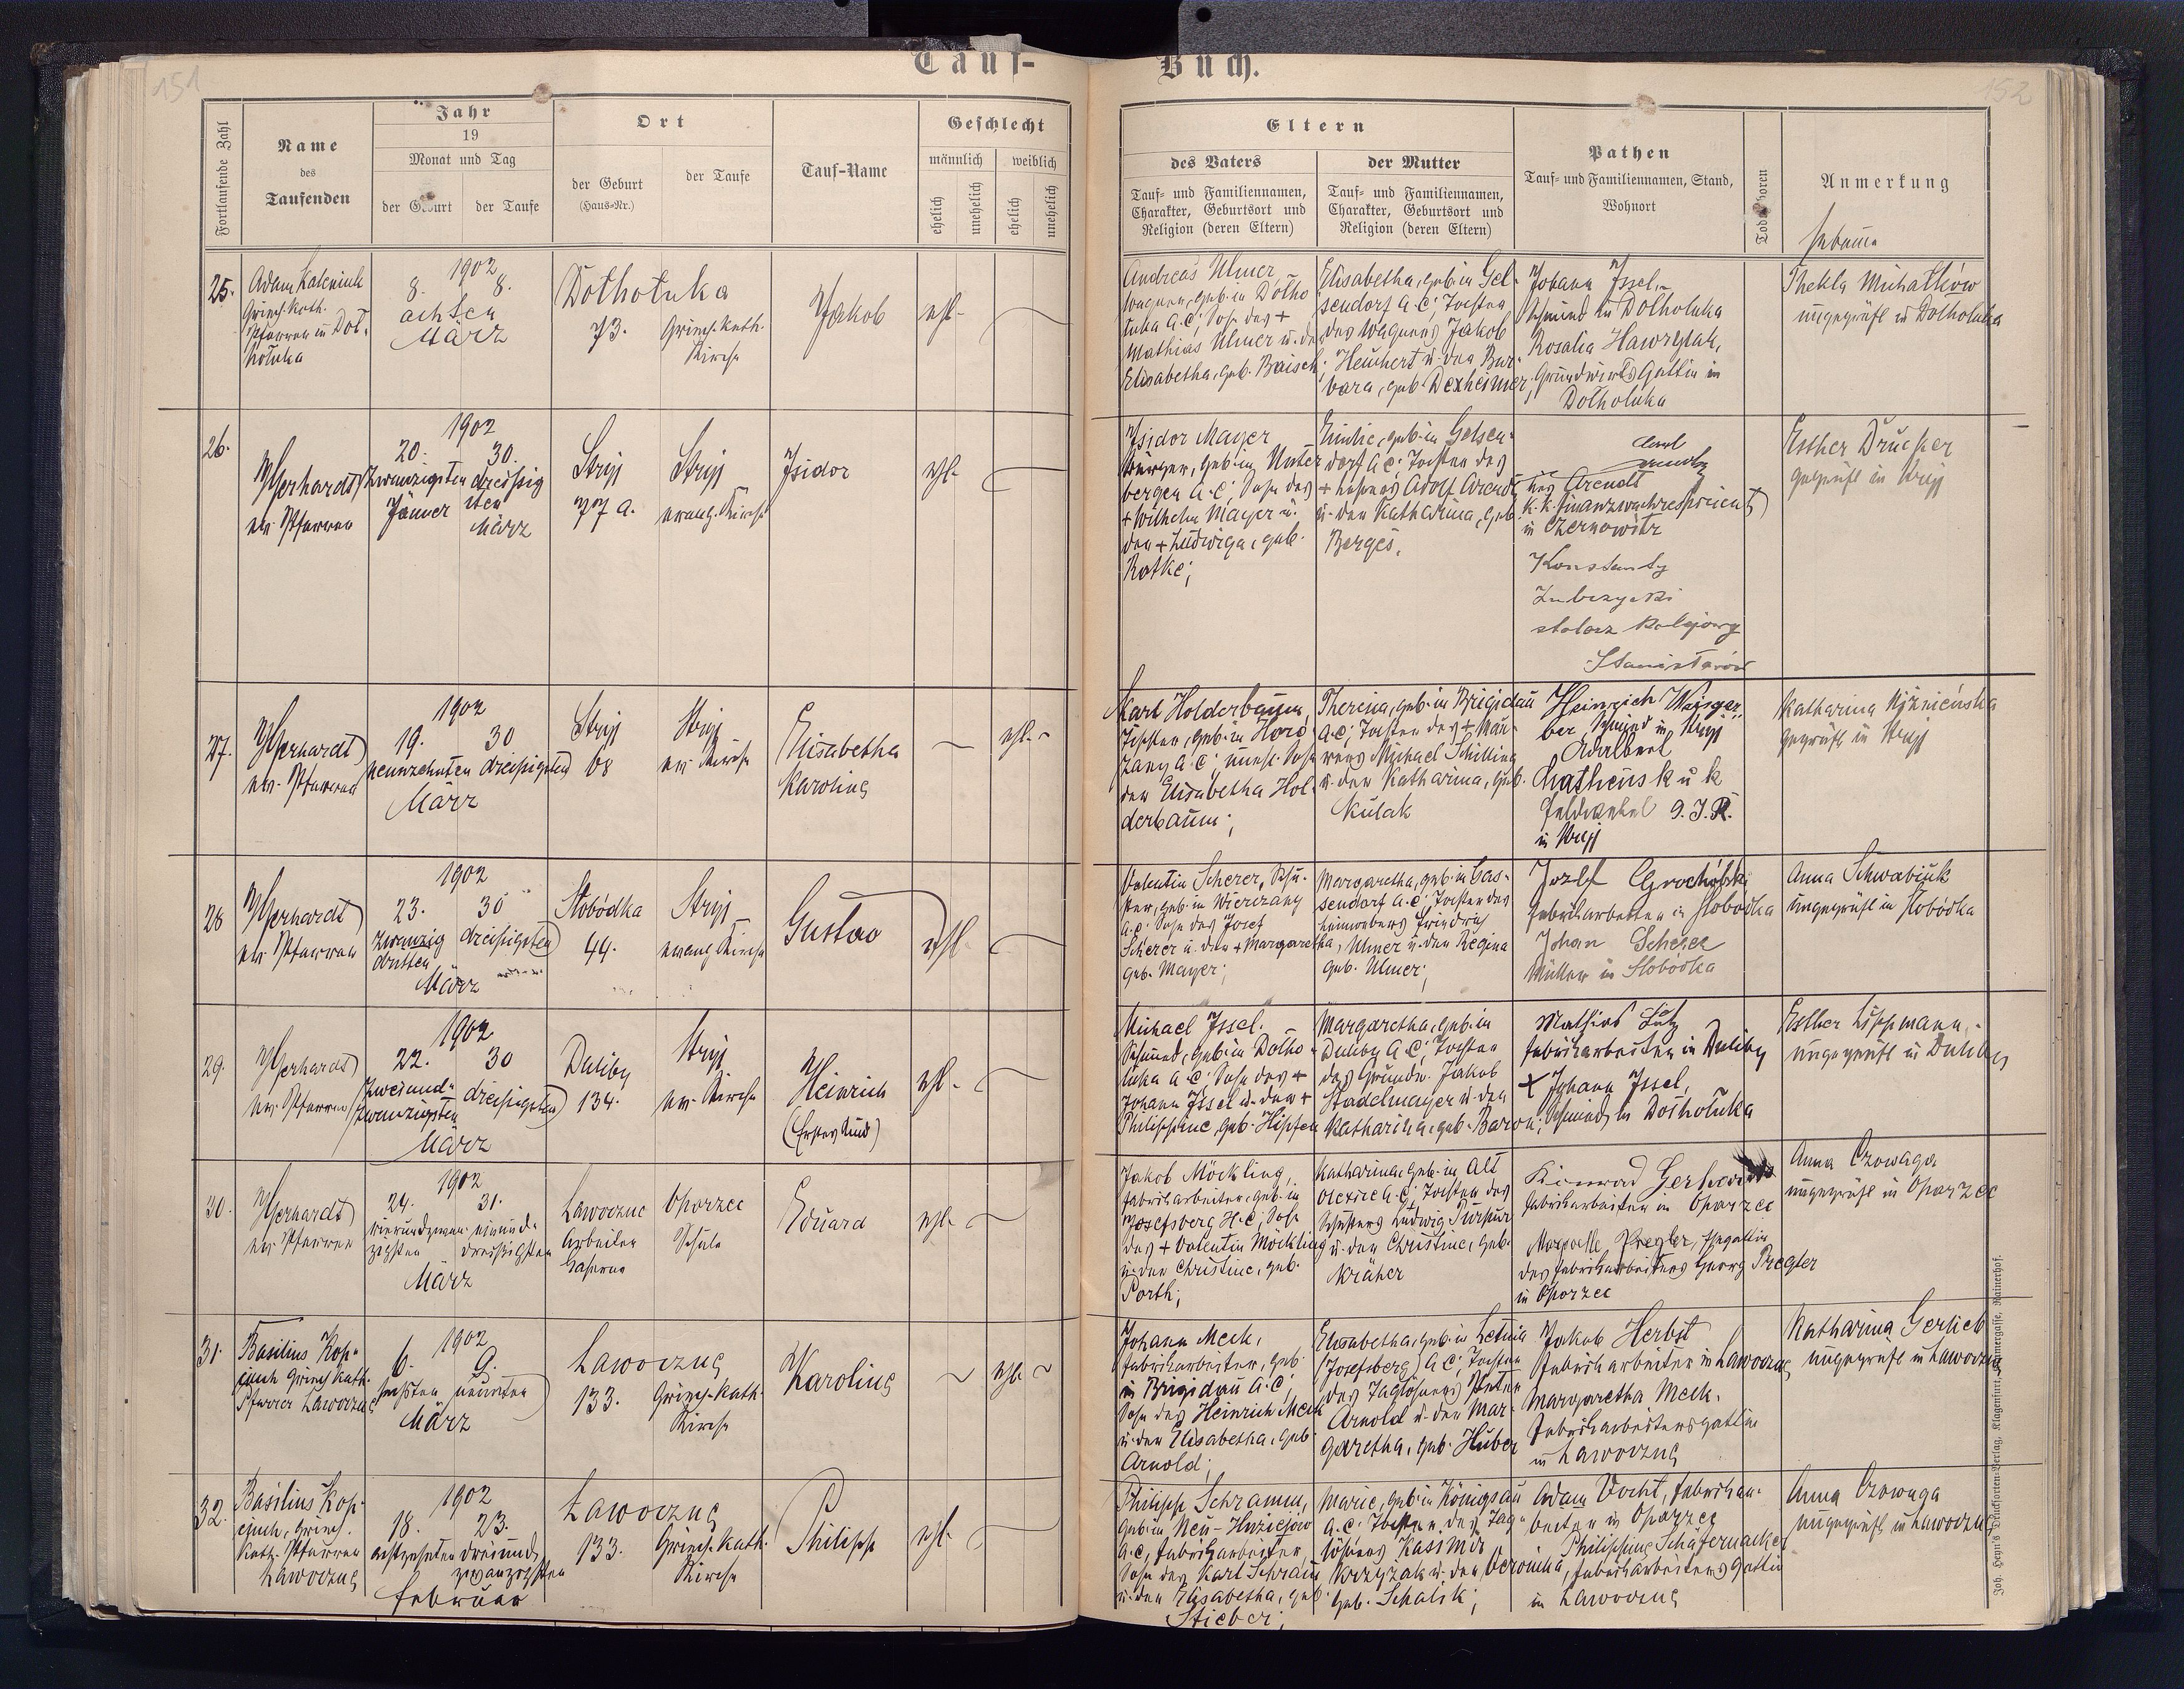 151
Tauf-
Buch.
152
Fortlaufende Zahl
Name
des
Taufenden
Jahr
19
Monat und Tag
der Geburt
der Taufe
Ort
der Geburt
(Haus-Nr.)
der Taufe
Tauf-Name
Geschlecht
männlich
weiblich
ehelich
unehelich
ehelich
unehelich
Eltern
des Vaters
Tauf- und Familiennamen,
Charakter, Geburtsort und
Religion (deren Eltern)
der Mutter
Tauf- und Familiennamen,
Charakter, Geburtsort und
Religion (deren Eltern)
Pathen
Tauf- und Familiennamen, Stand,
Wohnort
Anmerkung
Hebamme
25.
Griech. kath.
Pfarrer in Doł-
hołuka
1902
8. 8.
achten
März
Dołhołuka
73.
Griech. kath.
Kirche
Jakob
ehl.
Andreas Ulmer
Wagner, geb. in Dołho
łuka A.C; Sohn des +
Mathias Ulmer u. der
Elisabetha, geb. Baisch;
Elisabetha, geb. in Gel-
sendorf A.C; Tochter
des Wagners Jakob
Heuchert u. der Bar-
bara, geb. Dexheimer;
Johann Issel,
Schmied in Dołhołuka
Rosalia Hawrylak,
Grundwirts Gattin in
Dołhołuka
Thekla Michałków
ungeprüft in Dołhołuka
26.
Gerhardt
ev. Pfarrer
1902
20. 30.
zwanzigsten dreissig
Jänner sten
März
Stryj
77 a.
Stryj
evang. Kirche
Isidor
ehl.
Isidor Mayer
geb. in Unter
bergen A.C; Sohn des
+ Wilhelm Mayer u.
der + Ludwiga, geb.
Ratke;
Emilie, geb. in Gelsen-
dorf A.C; Tochter des
+ Lehrers Adolf Arendt
u. der Katharina, geb.
Berges.
Arendt
k.k. Finanzwachrespicient
in Czernowitz
Konstanty
stolarz kolejowy
Stanisławów
Esther Drucker
geprüft in Stryj
27.
Gerhardt
ev. Pfarrer
1902
19. 30
neunzehnten dreißigsten
März
Stryj
68
Stryj
ev. Kirche
Elisabetha
Karoline
ehl.
Karl Holderbaum,
Tischler, geb. in Horo
żany A.C; unehl. Sohn
der Elisabetha Hol-
derbaum;
Theresia, geb. in Brigidau
A.C; Tochter des + Mau-
rers Michael Schilling
u. der Katharina, geb.
Kulak
Heinrich Weisger-
ber, Schmied in Stryj
Adalbert
Matheus k u k
Feldwebel 9. I. R.
in Stryj
Katharina Niżnieńska
geprüft in Stryj
28
Gerhardt
ev. Pfarrer
1902
23. 30
zwanzig dreißigsten
dritten
März
Słobódka
44.
Stryj
evang. Kirche
Gustav
ehl.
Valentin Scherer, Schu-
ster, geb. in Wierczany
A.C; Sohn des Josef
Scherer u. der + Margaretha,
geb. Mayer;
Margaretha, geb. in Gas-
sendorf A.C; Tochter des
Leinwebers Friedrich
Ulmer u. der Regina
geb. Ulmer;
Fabriksarbeiter in Słobódka
Johan Scherer
Müller in Słobódka
Anna Schwabiuk
ungeprüft in Słobódka
29.
Gerhardt
ev. Pfarrer
1902
22. 30
zweiund- dreißigsten
zwanzigsten
März
Duliby
134.
Stryj
ev. Kirche
Heinrich
(Erstes Kind)
ehl.
Michael Issel.
Schmied, geb. in Dołho
łuka A.C; Sohn des +
Johann Issel u. der +
Philippine, geb. Hipfen
Margaretha, geb. in
Duliby A.C; Tochter
des Grundw. Jakob
Stadelmayer u. der
Katharina, geb. Baron;
Mathias Lutz
Fabriksarbeiter in Duliby
+ Johann Issel,
Schmied in Dołhołuka
Esther Lippmann,
ungeprüft in Duliby
30.
Gerhardt
ev. Pfarrer
1902
24. 31.
vierundzwan- einund-
zigsten dreissigsten
März
Ławoczne
Arbeiter
Kaserne
Oporzec
Schule
Eduard
ehl.
Jakob Möckling,
Fabriksarbeiter, geb. in
Josefsberg H.C; Sohn
des + Valentin Möckling
u. der Christine, geb.
Porth;
Katharina, geb. in Alt
Olexice A.C; Tochter des
Schusters Ludwig Purpur
u. der Christine, geb.
Kräher
Konrad Gerhardt
Fabriksarbeiter in Oporzec
Pregler, Ehegattin
des Fabriksarbeiters Georg Pregler
in Oporzec
Anna Czowaga
ungeprüft in Oporzec
31.
Basilius Kop-
ciuch Griech. kath.
Pfarrer Ławoczne
1902
6. 9.
sechsten neunten
März
Ławoczne
133.
Griech. kath.
Kirche
Karoline
ehl.
Johann Meck,
Fabriksarbeiter, geb.
in Brigidau A.C;
Sohn des Heinrich Meck
u. der Elisabetha, geb.
Arnold;
Elisabetha, geb. in Letnia
(Josefsberg) A.C; Tochter
des Taglöhners Peter
Arnold u. der Mar-
garetha, geb. Huber
Jakob Herbst
Fabriksarbeiter in Ławoczne
Margaretha Meck.
Fabriksarbeitersgattin
in Ławoczne
Katharina Gerlieb
ungeprüft in Ławoczne
32.
Basilius Kop-
ciuch, Griech.
Kath. Pfarrer
Ławoczne
1902
18. 23.
achtzehnten dreiund-
zwanzigsten
Februar
Ławoczne
133.
Griech. kath.
Kirche
Philipp
ehl.
Philipp Schramm,
geb. in Neu-Huziejów
A.C, Fabriksarbeiter,
Sohn des Karl Schramm
u. der Elisabetha, geb.
Stieber;
Marie, geb. in Königsau
A.C; Tochter des Tag-
löhners Kasimir
Krzyżak u. der Veronika,
geb. Schalik;
Adam Vocht, Fabriksar-
beiter in Oporzec
Philippine Schäfernacker,
Fabriksarbeiters Gattin
in Ławoczne
Anna Czowaga
ungeprüft in Ławoczne
Joh. Heyn's Drucksorten-Verlag, Klagenfurt, Kramergasse, Rainerhof.